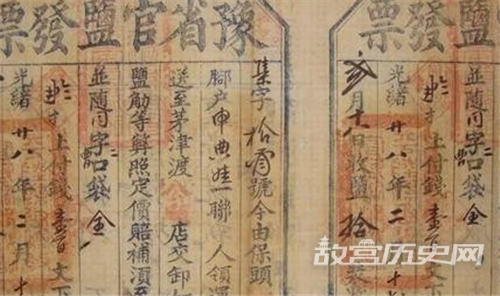 豫省官鹽發票
集字 拾 號今由保頭
腳户申典娃一聯 人領運
送至茅津渡 店交卸
鹽觔等弊照定價賠補須至
並随付字口袋全
上付錢壹百文下
光緒廿八年二月十
鹽發票
月十八日收鹽拾
並随付字口袋全
上付錢壹百文下
光緒廿八年二
故宫历史网